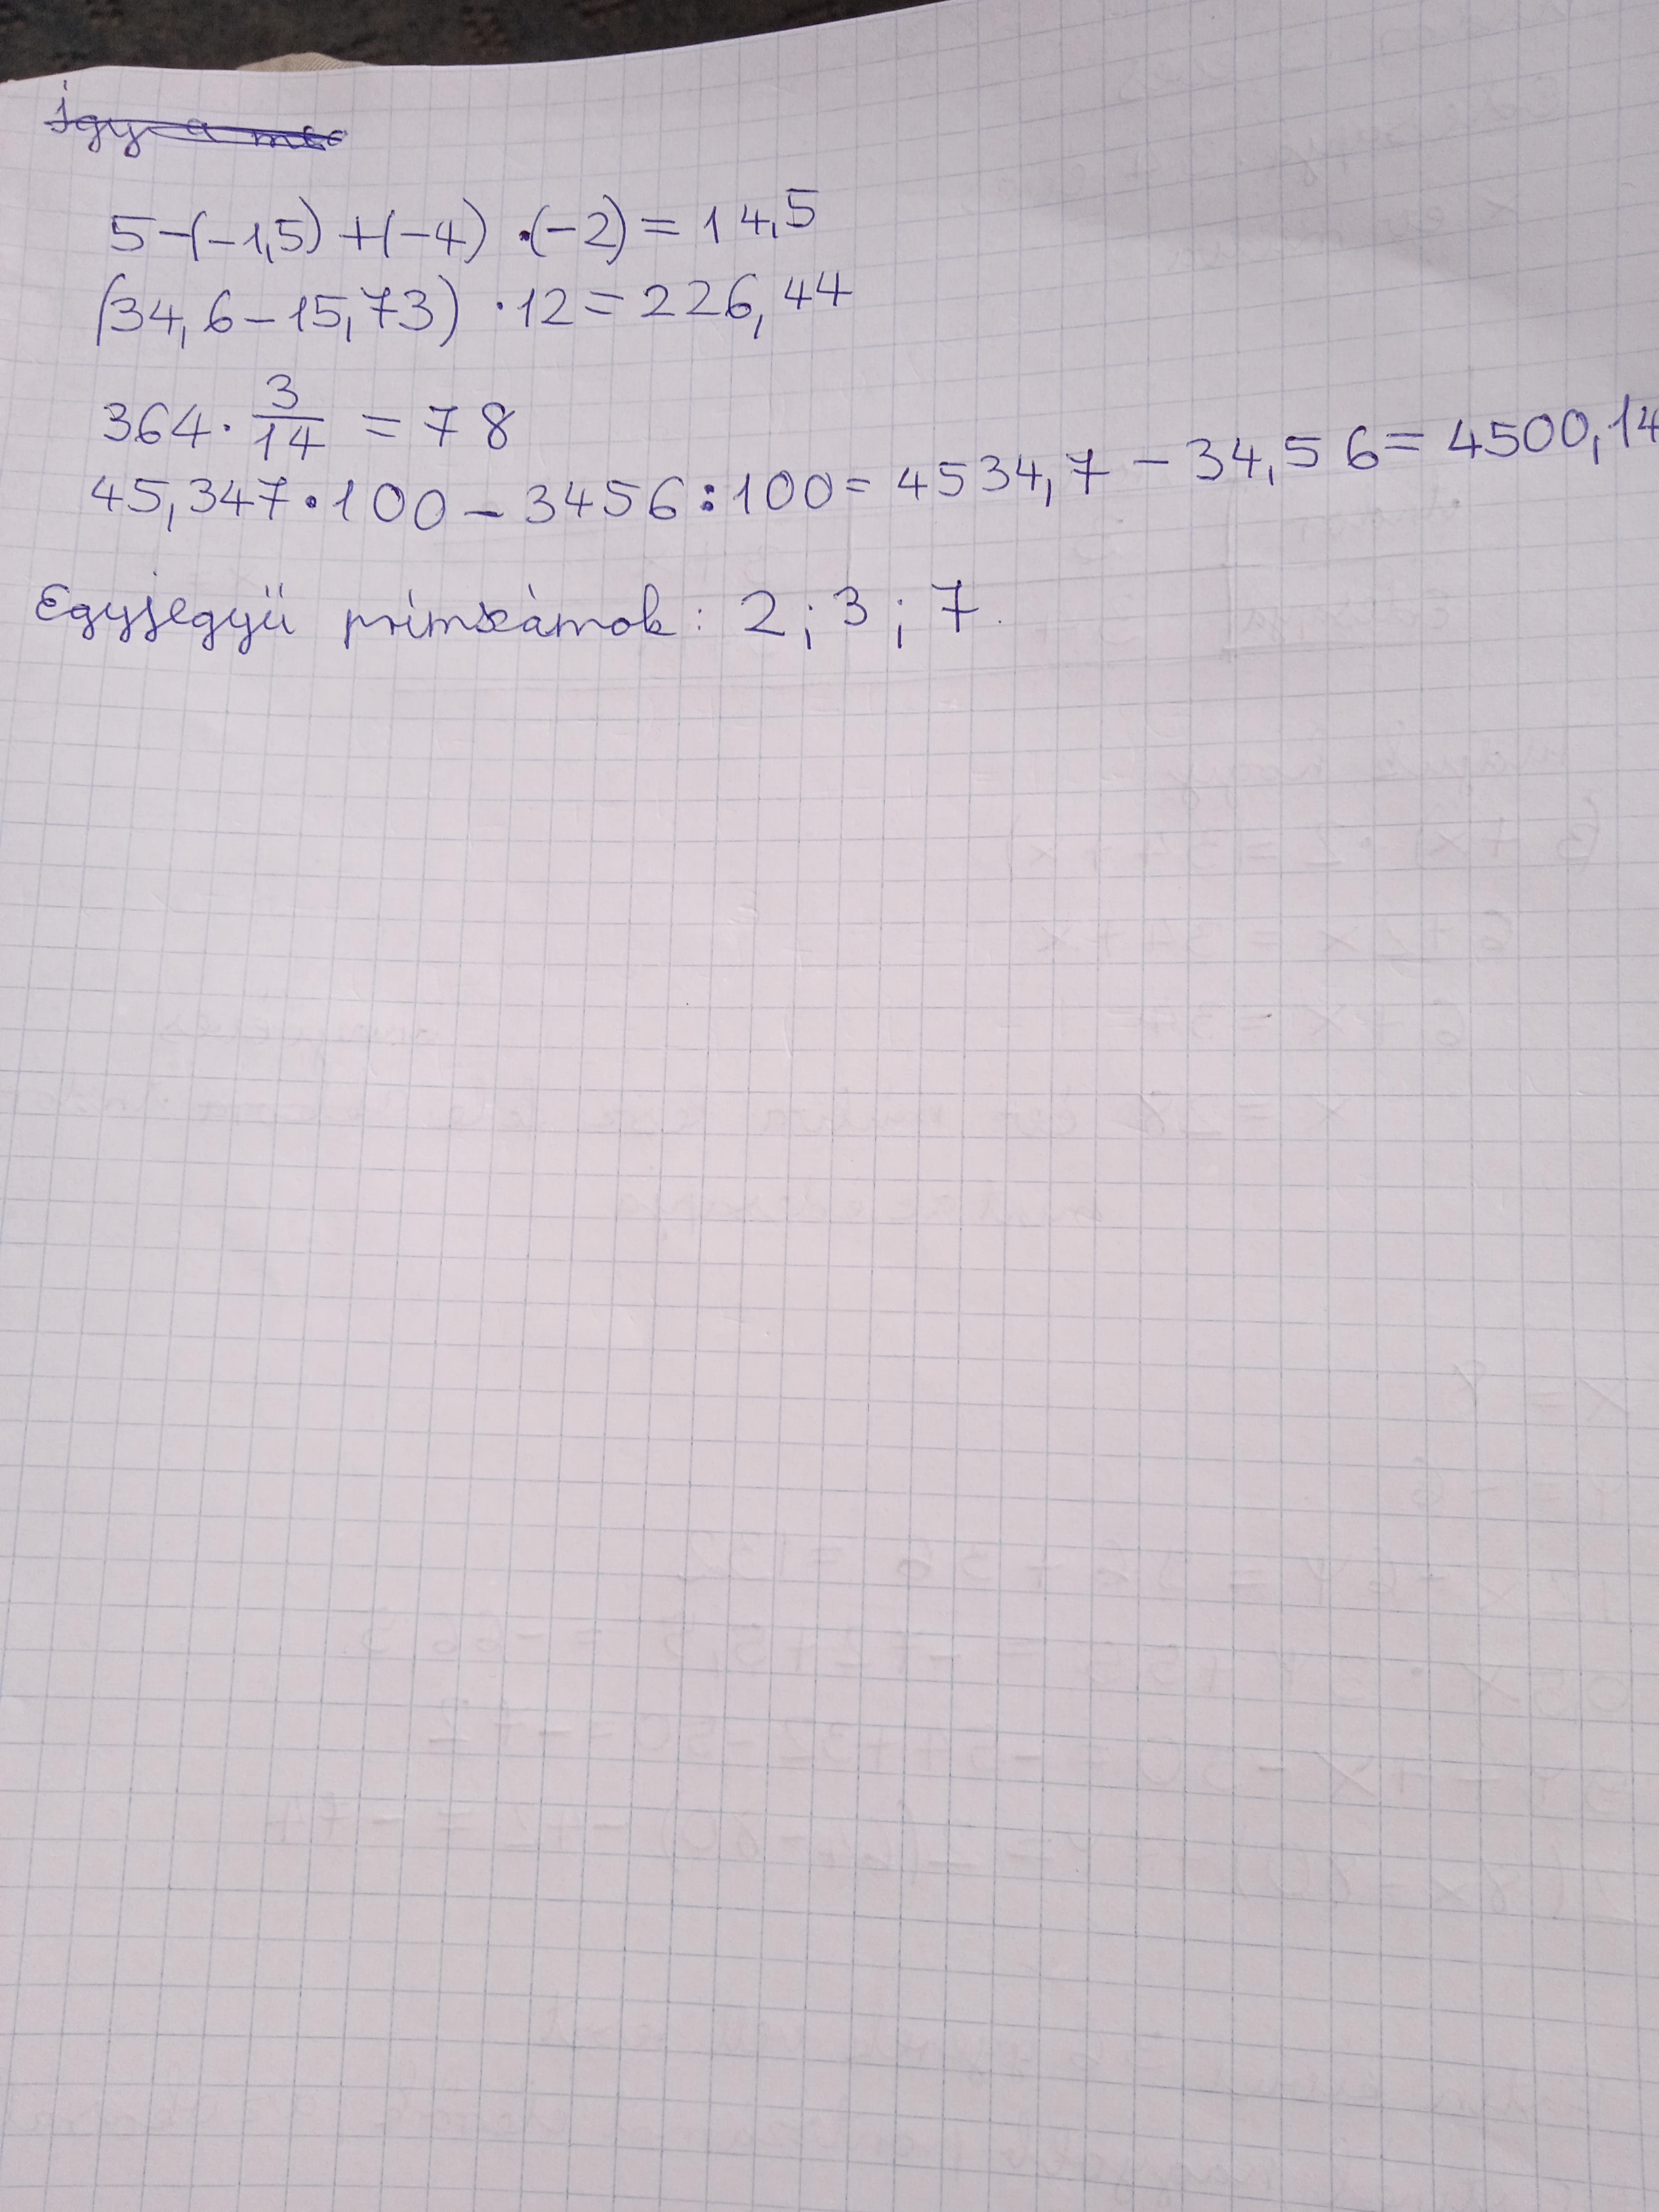 5-(-1,5)+(-4)·(-2)=14,5
(34,6-15,73)·12=226,44
364·3/14=78
45,347·100-3456:100=4534,7-34,56=4500,14
Egyjegyü prímszámok: 2; 3; 7.